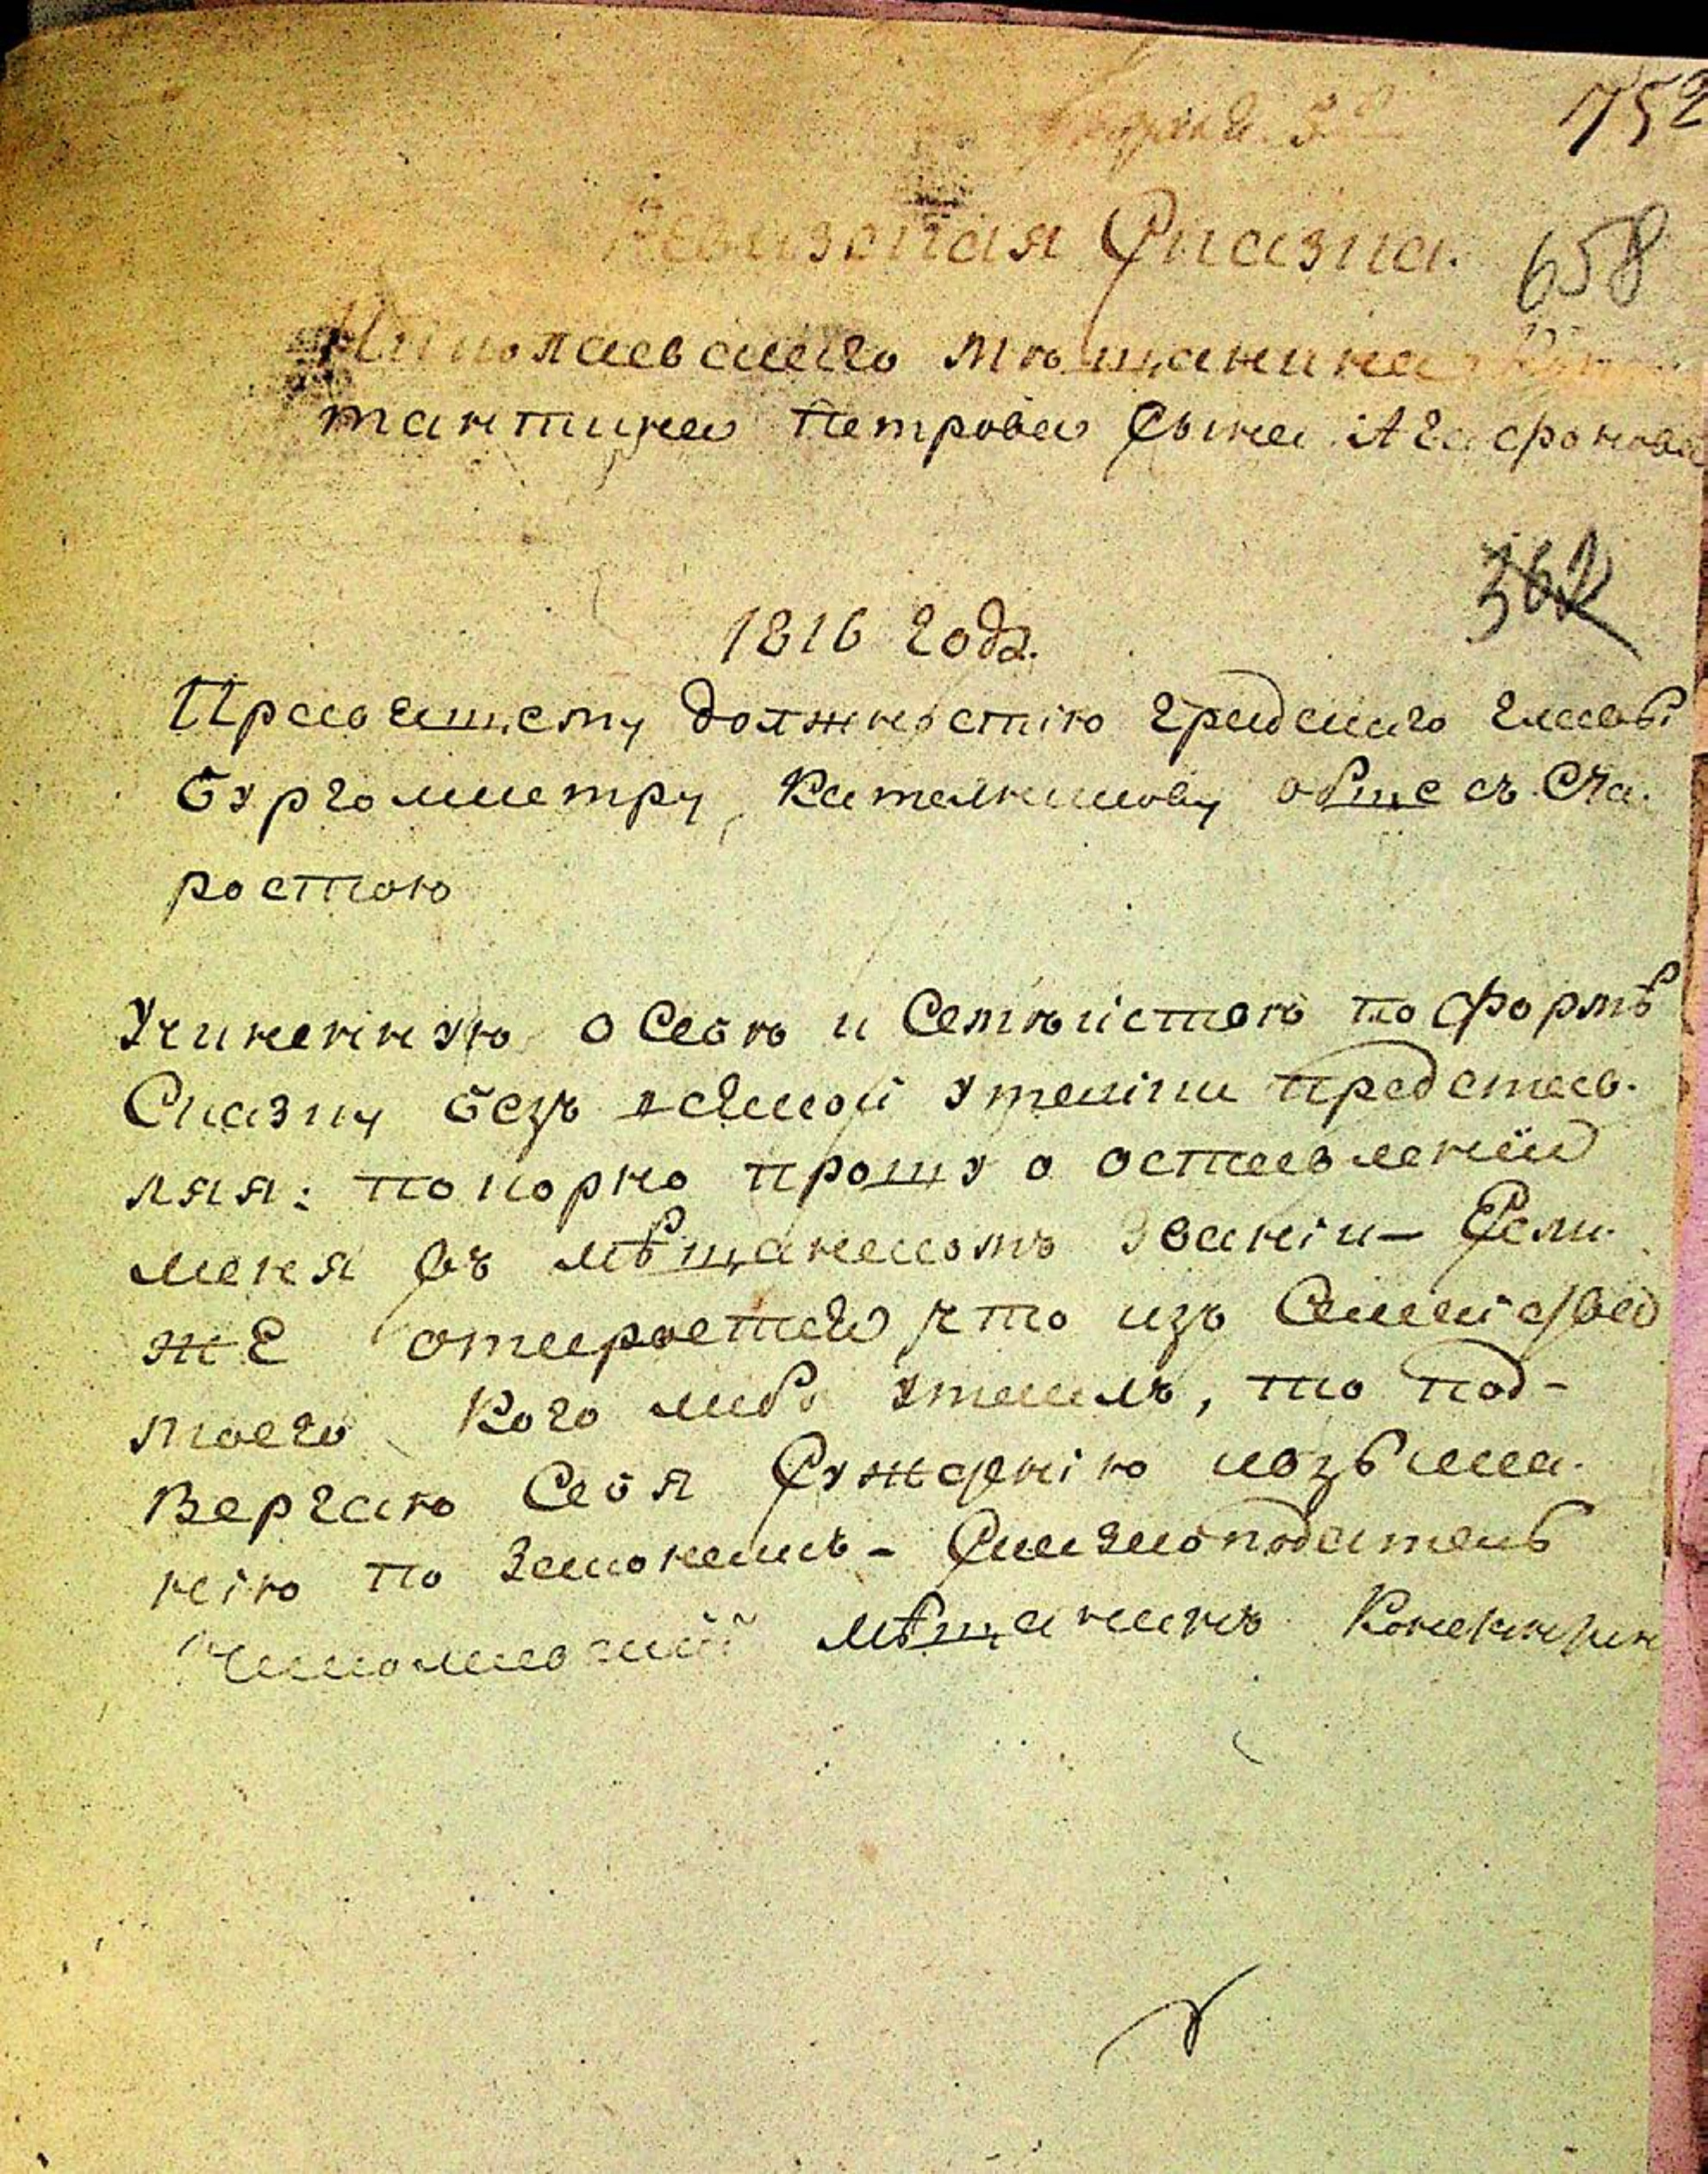 752
Ревизская Сказка.
658
Николаевскаго мѣщанина Конс
тантина Петрова сына Агафонова
362
1816 года.
Правящему должность градскаго главы
Бургомистру Кательникову обще съ Ста.
ростою
Учиненную о себѣ и семѣйствѣ по формѣ
Сказку безъ всякой утайки представ.
ляя: покорно прошу о оставлении
меня въ мѣщанскомъ званіи – Если.
же откроется что изъ семейства
моего кого либо утаилъ, то под-
вергаю себя сужденію и взыска.
нію по законамъ – Сказкоподатель
Николаевский мѣщанинъ Констнтин